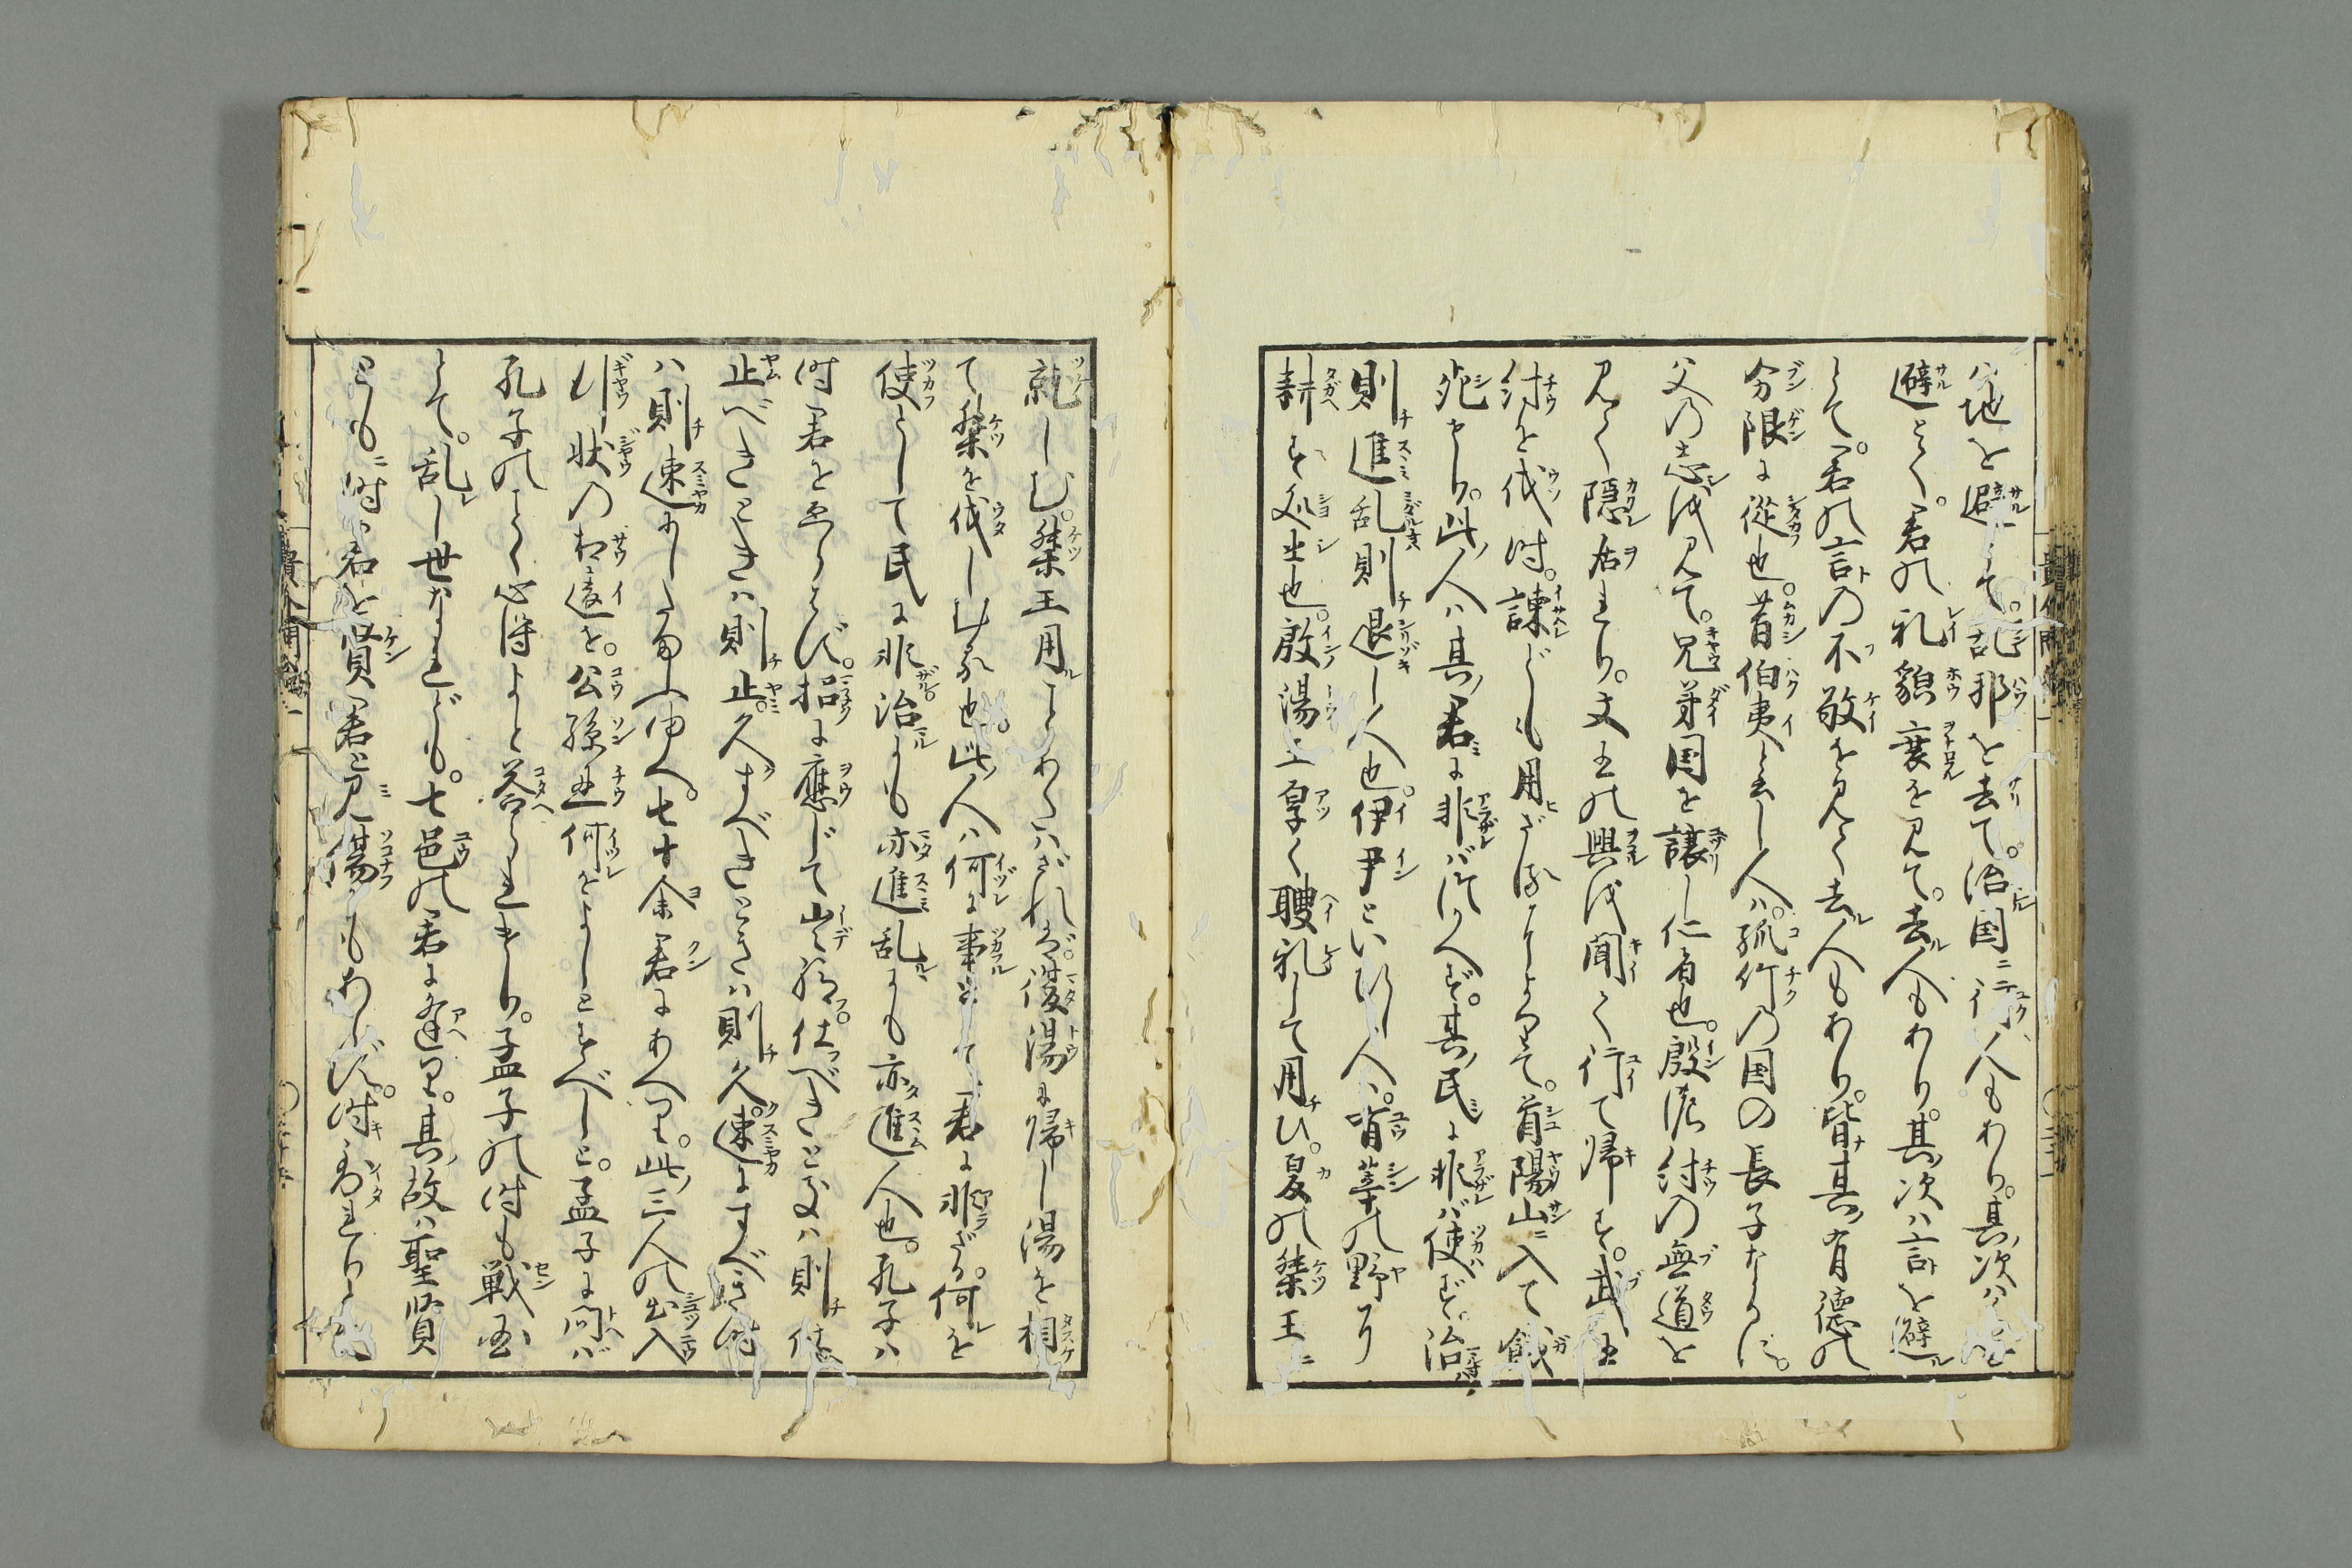 ハ地を避として。乱邦を去て。治国ニ行人もあり。其次ハ色
避とて。君の礼貌衰を見て。去人もあり。其次ハ言を避
とて。君の言の不敬を見て去人もあり。皆其有徳の
分限に従也。昔伯夷と云し人ハ。孤竹の国の長子なるが。
父の志を見て。兄弟国を譲し仁者也。殷紂の無道を
見て隠居せり。文王の興を聞て行て帰す。武王
紂を伐時。諫どしも用ざるによりて。首陽山ニ入て餓
死せり。此人ハ其君に非バつかへず。其民に非バ使ず。治
則進乱則退し人也。伊尹といひし人ハ。有莘の野に
耕す処士也。殷湯王厚く聘礼して用ひ。夏の桀王ニ
就しむ。桀王用ことあたハざれば。復湯に帰し湯を相
て桀を伐しむる也。此人ハ何に事として君に非ざる。何を
使として民に非。治にも亦進乱にも亦進人也。孔子ハ
時君をゑらばず。招に應じて出給。仕べきときハ則仕
止べきときハ則止。久すべきときハ則久。速にすべき時
ハ則速にしたまへ申候。七十余君にあへり。此三人の出入
行状の相違を。公孫丑何をよしとすべしと。孟子に問バ
孔子のごとく心得よと答られたり。孟子の時も戦国
とて。乱し世なれども。七邑の君に逢り。其故ハ聖賢
とも時君を賢君と見傷にもあらず。時いたれりと